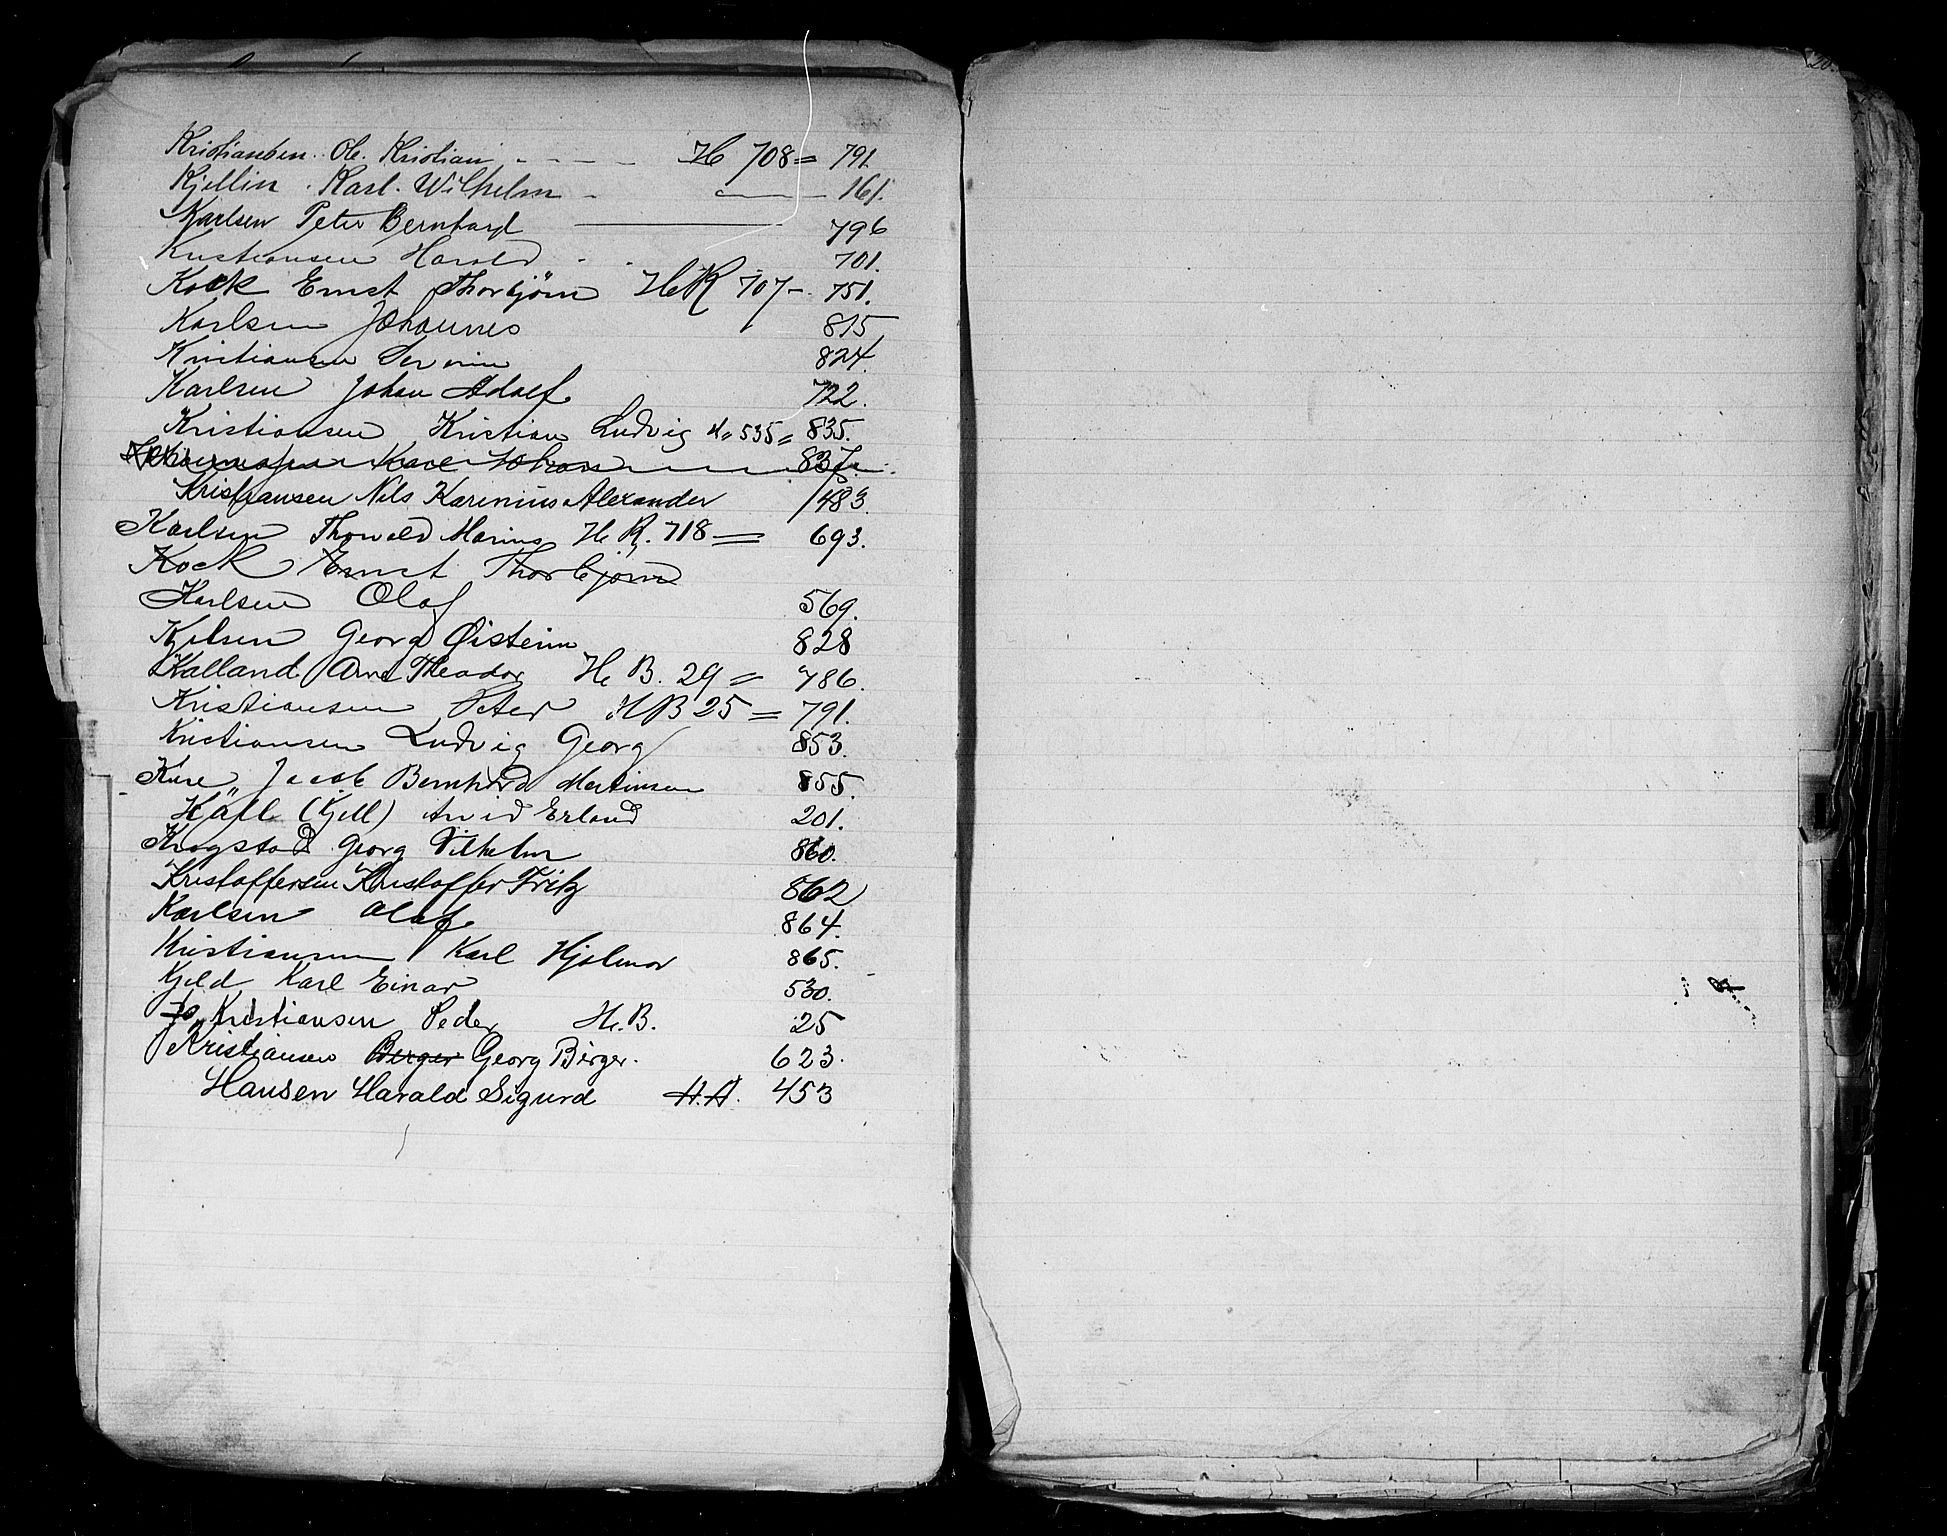 Kristiansen Ole Kristian - - - - H 708 = 791.
Kjellin Karl Wilhelm - 161.
Karlsen Peter Bernhard 796
Kristiansen Harald - - 701.
Kock Ernst Thorbjörn HR 707 - 751.
Karlsen Johannes 815
Kristiansen Severin 824.
Karlsen Johan Adolf 722.
Kristiansen Kristian Ludvig H = 535 = 835.
Karl Johan 837.
Kristiansen Nils Karinius Alexander 1483.
Karlsen Thorvald Marius H R. 718 = 693.
Kock Ernst Thorbjörn
Karlsen Olaf 569.
Kjelsen Georg Øistein 828
Kalland Arne Theodor H B. 29 = 786.
Kristiansen Peter H B 25 = 791.
Kristiansen Ludvig Georg 853.
Kure Jacob Bernhard Martinsen 855.
Käll (Kjell) Arvid Erland 201.
Krogstad Georg Vilhelm 860.
Kristoffersen Kristoffer Fritz 862
Karlsen Olaf 864.
Kristiansen Karl Hjalmar 865.
Kjeld Karl Einar 530.
Kristiansen Peder H. B. 25
Kristiansen Berger Georg Birger. 623.
Hansen Harald Sigurd A.A. 453
20.